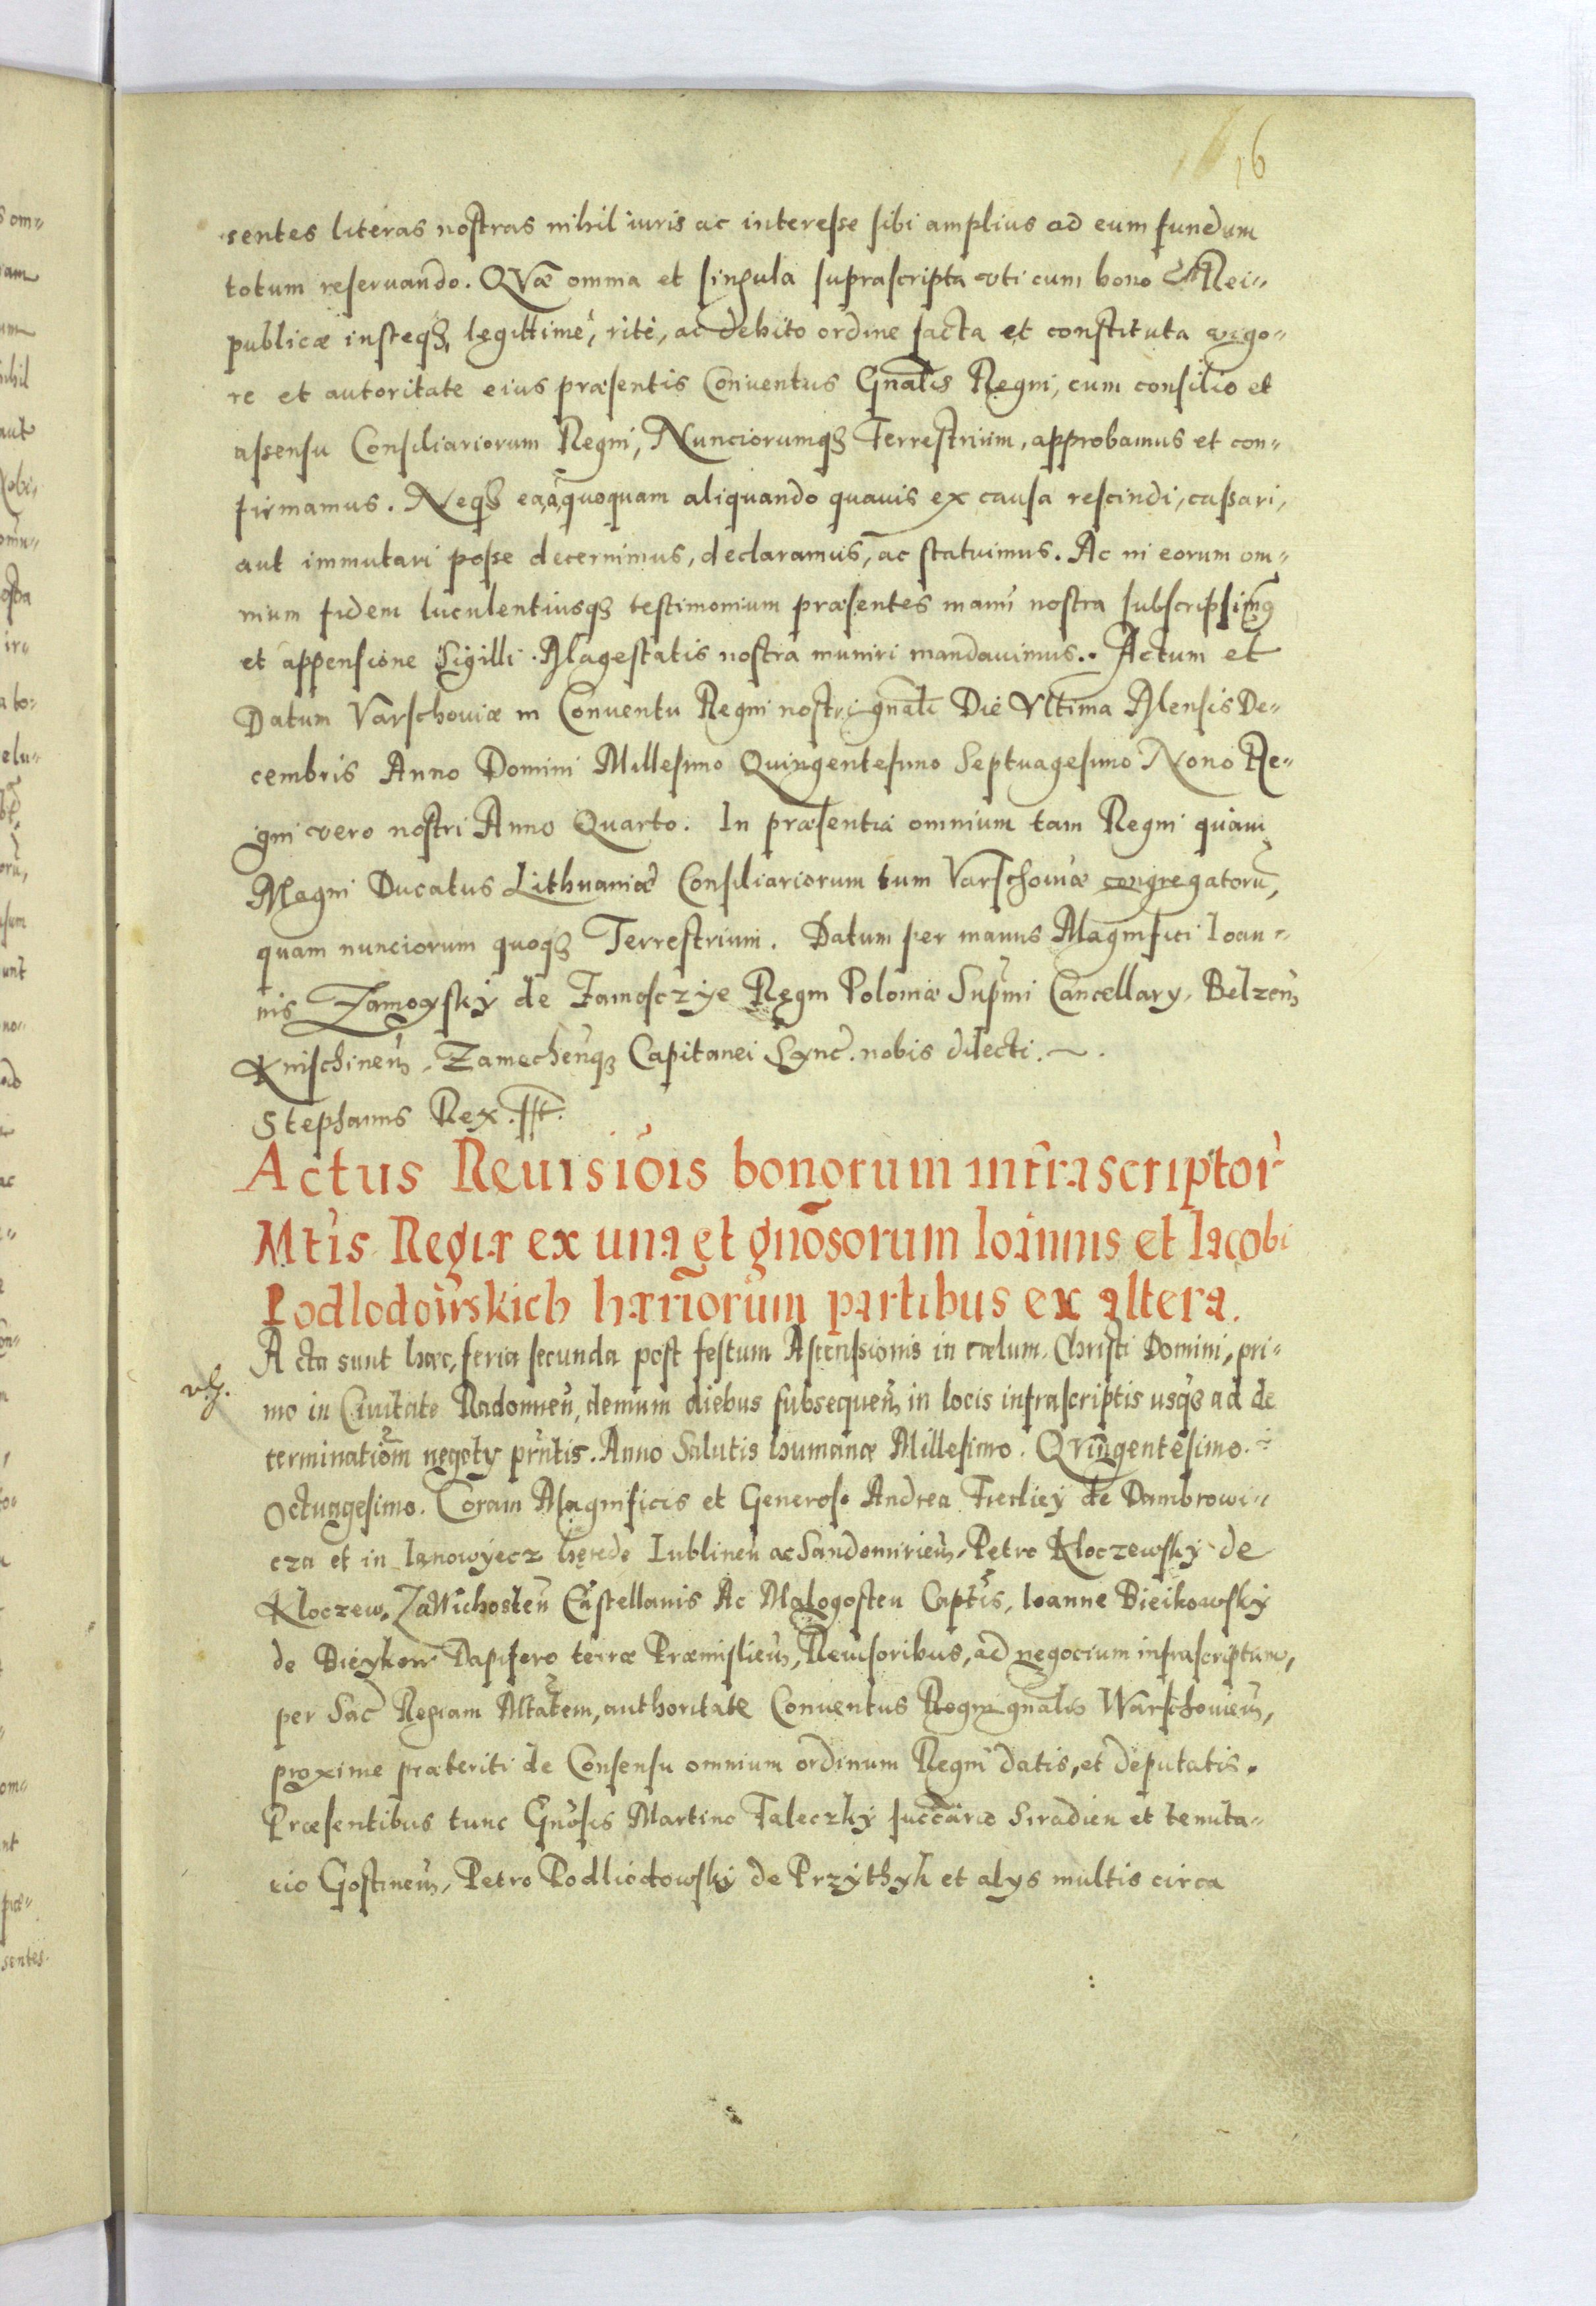 16
sentes literas nostras nihil iuris ac interesse sibi amplius ad eum fundum
totum reseruando. QVæ omnia et singula suprascripta vti cum bono Rei-
publicæ insteqꝫ legittimè, ritè, ac debito ordine facta et constituta vigo-
re et autoritate eius præsentis Conuentus Gnalis Regni, cum consilio et
assensu Consiliariorum Regni, Nunciorumqꝫ Terrestrium, approbamus et con-
firmamus. Neqꝫ ea, à quoquam aliquando quauis ex causa rescindi, cassari,
aut immutari posse decernimus, declaramus, ac statuimus. Ac in eorum om-
nium fidem luculentiusqꝫ testimonium præsentes manu nostra subscripsimꝰ
et appensione Sigilli Magestatis nostra muniri mandauimus. Actum et
Datum Varschouiæ in Conuentu Regni nostri gnali Die Vltima Mensis De-
cembris Anno Domini Millesimo Quingentesimo Septuagesimo Nono Re-
gni vero nostri Anno Quarto. In præsentia omnium tam Regni quam
Magni Ducatus Lithuaniæ Consiliariorum tum Varschouiæ congregatorũ,
quam nunciorum quoqꝫ Terrestrium. Datum per manus Magnifici Ioan-
nis Zamoysky de Zamosczye Regni Poloniæ Supmi Cancellary, Belzen̄
Knischinen̄, Zamechen̄qꝫ Capitanei Sync. nobis dilecti.
Stephanus Rex. sst.
Actus Reuisiōis bonorum infrascriptor
Mtis Regiæ ex una et gnōsorum Ioannis et Iacobi
Podlodowskich hæriōrum partibus ex altera.
Acta sunt hæc, feria secunda post festum Ascensionis in cælum, Christi Domini, pri-
mo in Ciuitate Radomien̄, demum diebus subsequen̄ in locis infrascriptis usqꝫ ad de
terminatiōm negoty prn̄tis. Anno Salutis humanæ Millesimo. Qvingentesimo.
Octuagesimo. Coram Magnificis et Generoso Andrea Fierliey de Dambrowi-
cza et in Ianowyecz hęrede Lublinen̄ ac Sandomirien̄, Petro Kloczewsky de
Kloczew, Zawichosten̄ Castellanis Ac Malogosten Captis, Ioanne Dieikowsky
de Dieykow Dapifero terræ Præmislien̄, Reuisoribus, ad negocium infrascriptum,
per Sac Regiam Mtatem, authoritate Conuentus Regni gnalis Warschouien̄,
proxime præteriti de Consensu omnium ordinum Regni datis, et deputatis.
Præsentibus tunc Gnosis Martino Zaleczky succārio Siradien et tenuta-
rio Gostinen̄, Petro Podliodowsky de Przythyk et alys multis circa